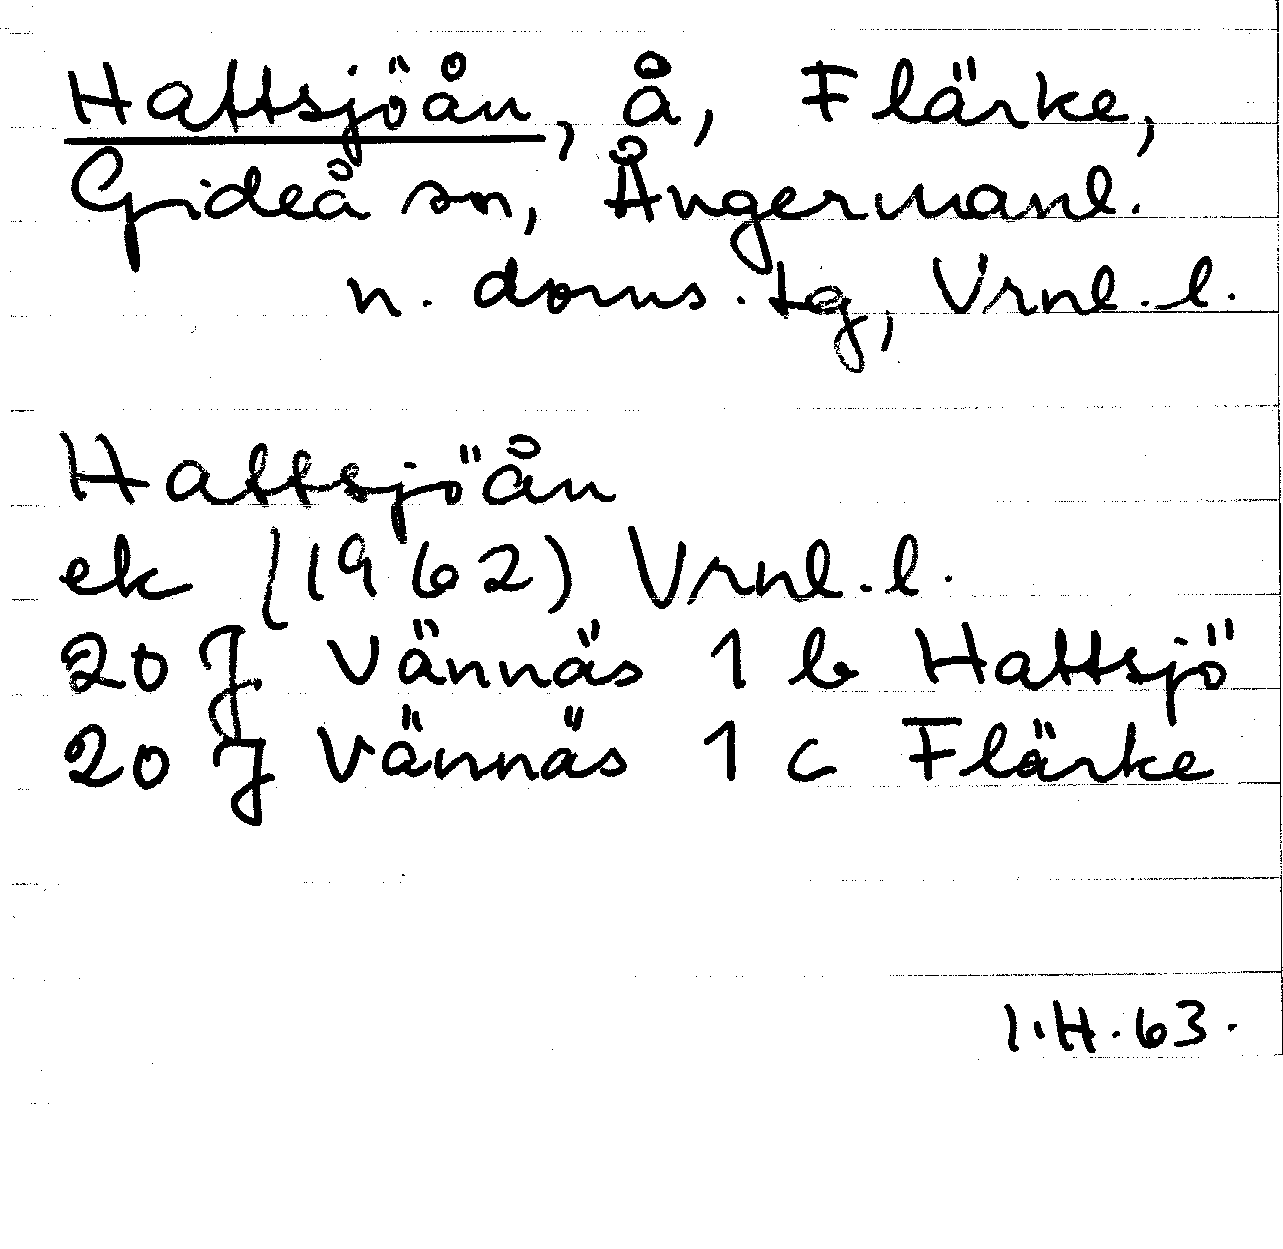 Hattsjöån, å, Flärke,
Gideå sn, Ångermanl.
n. doms. tg, Vrnl. l.
Hattsjöån
ek (1962) Vrnl. l.
20 J Vännäs 1 b Hattsjö
20 J Vännäs 1 c Flärke
I.H. 63.